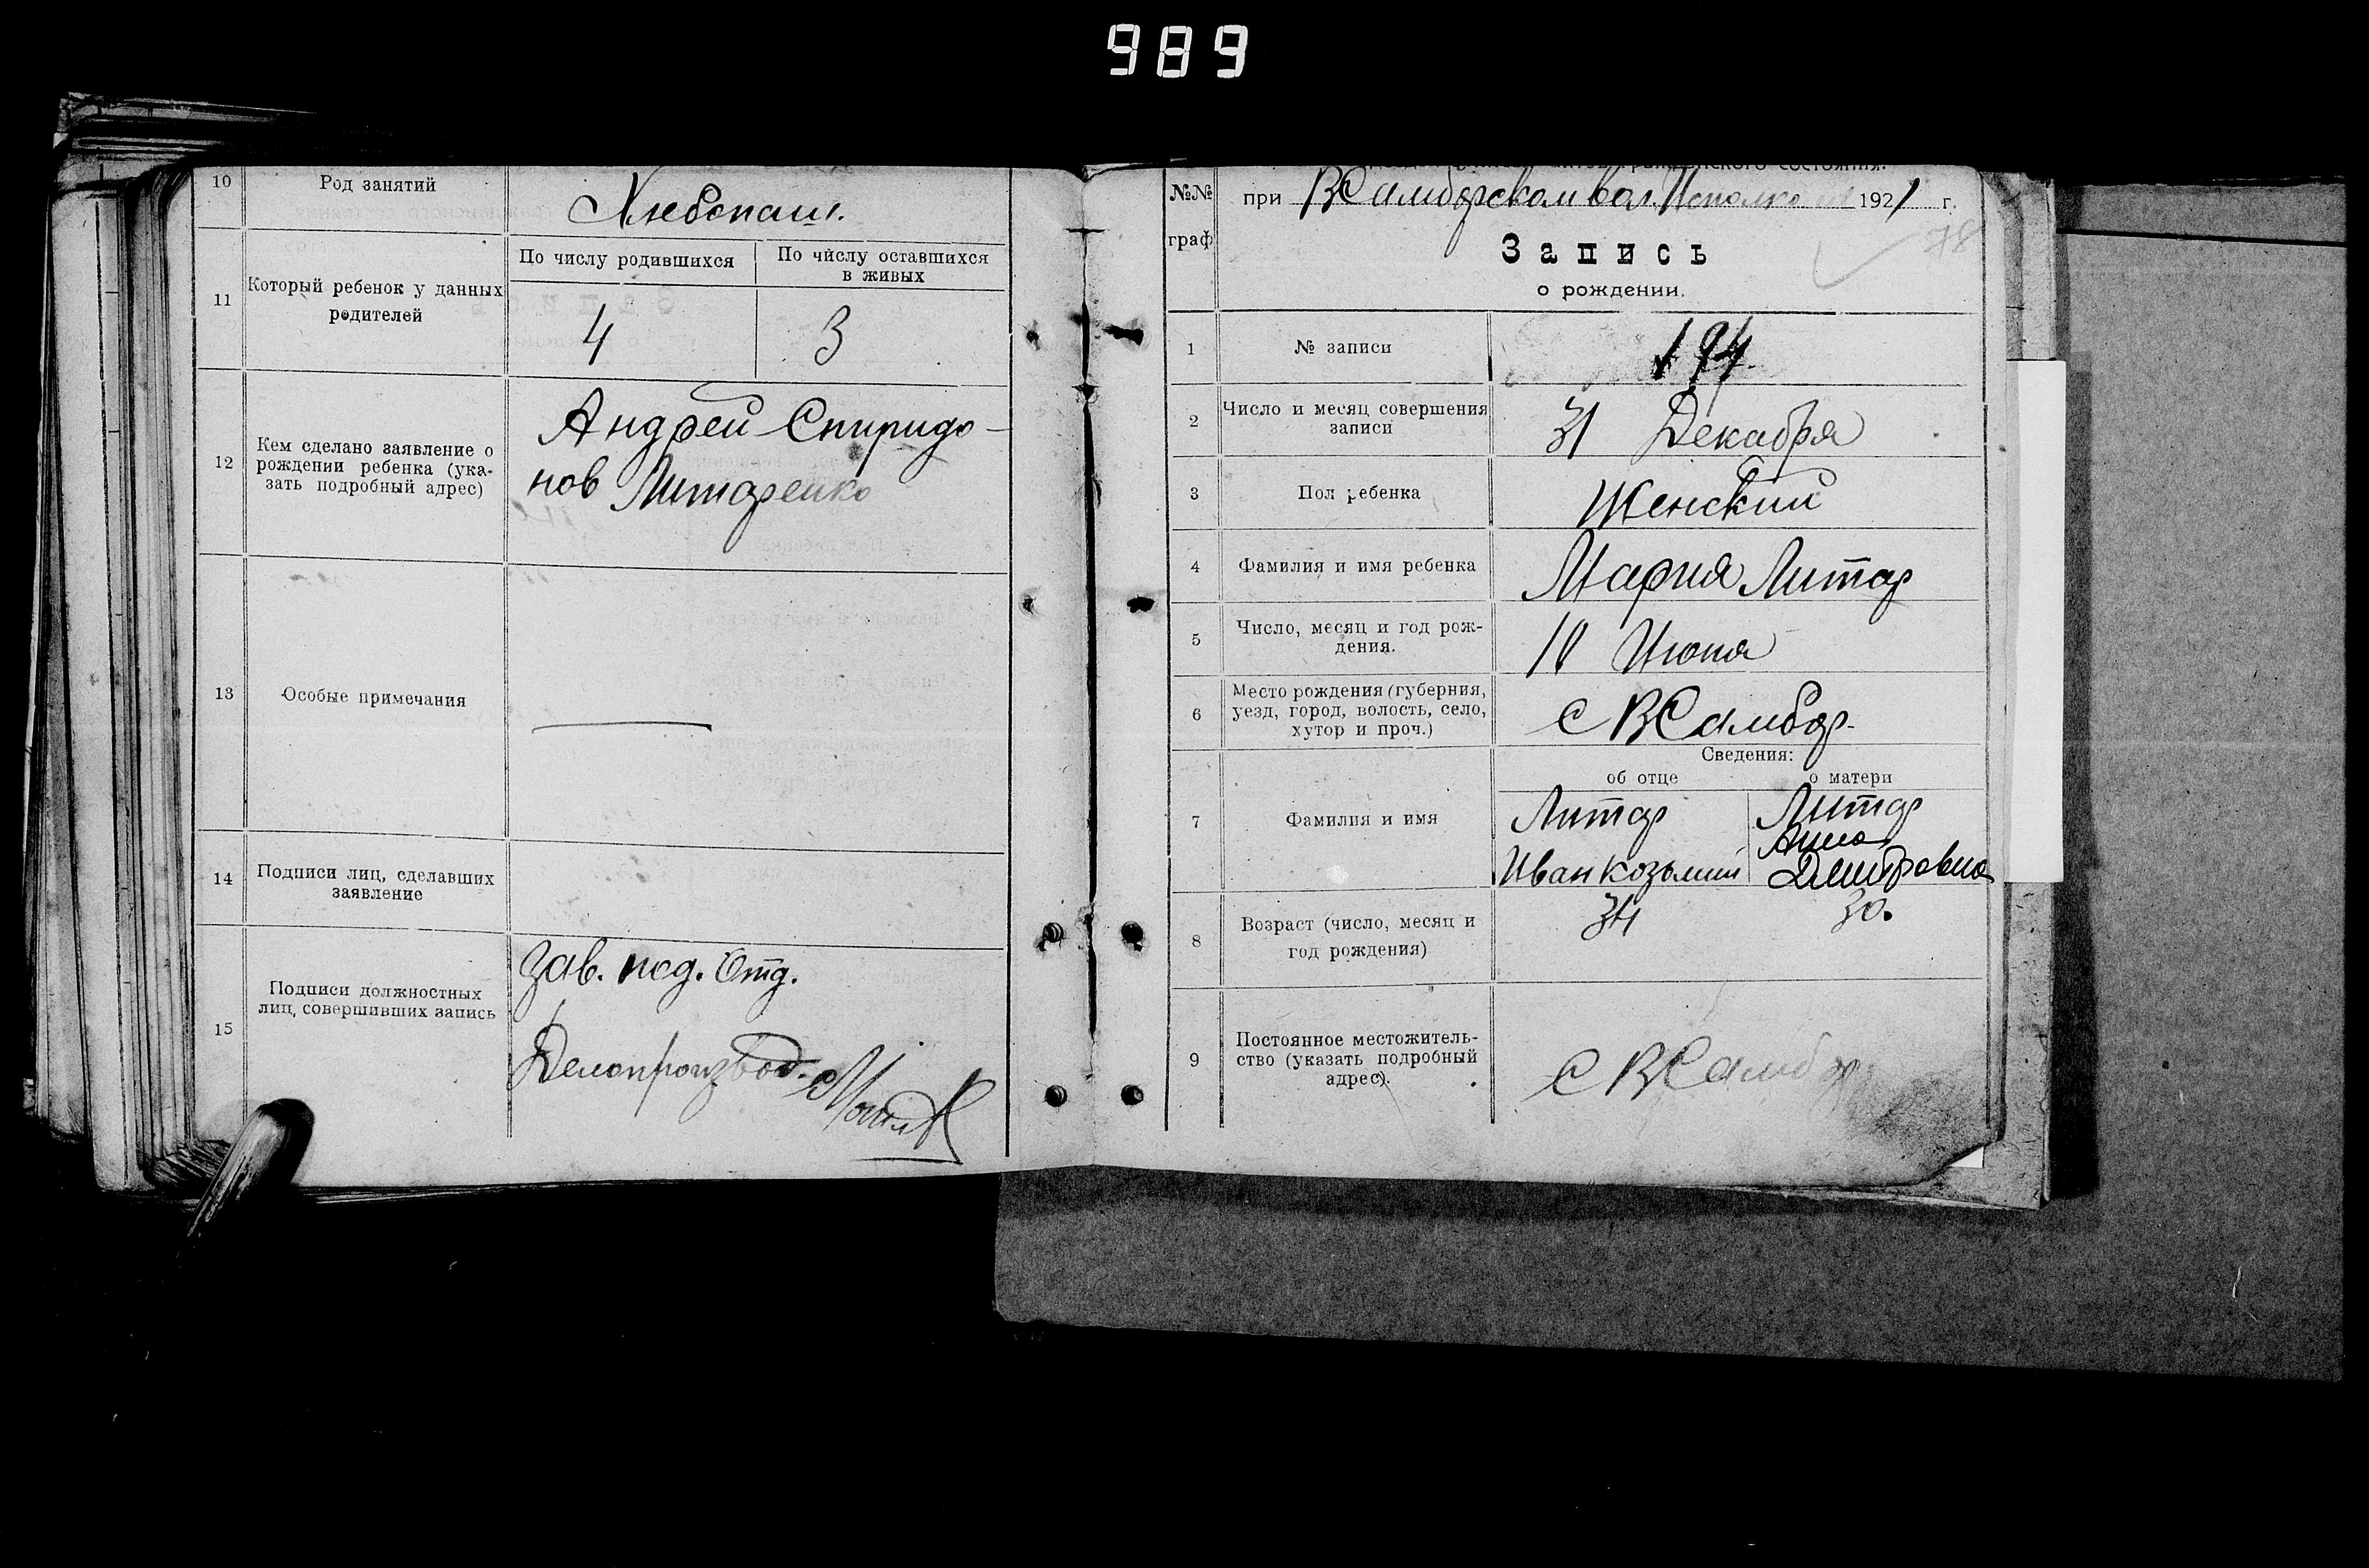 989
10 Род занятий Хлебопаш.
11 Который ребенок у данных родителей
По числу родившихся
По числу оставшихся
в живых
4 3
12 Кем сделано заявление о
рождении ребенка (ука-
зать подробный адрес)
Андрей Спиридо-
нов Литаренко
13 Особые примечания
14 Подписи лиц, сделавших
заявление
15 Подписи должностных
лиц, совершивших запись
Зав. под. Отд.
Делопроизвод.
№№
граф
при ВСамборском вол. Исполко 1921 г.
78
Запись
о рождении.
1 № записи 194
2 Число и месяц совершения
записи
31 Декабря
3 Пол ребенка Женский
4 Фамилия и имя ребенка Мария Литар
5 Число, месяц и год рож-
дения.
10 Июня
6 Место рождения (губерния,
уезд, город, волость, село,
хутор и проч.)
с ВСамбор.
Сведения:
об отце о матери
7 Фамилия и имя
Литар
Иван Козьмин
Литар
Анна
Дмитровна
8 Возраст (число, месяц и
год рождения)
34 30.
9 Постоянное местожитель-
ство (указать подробный
адрес).
с ВСамбор